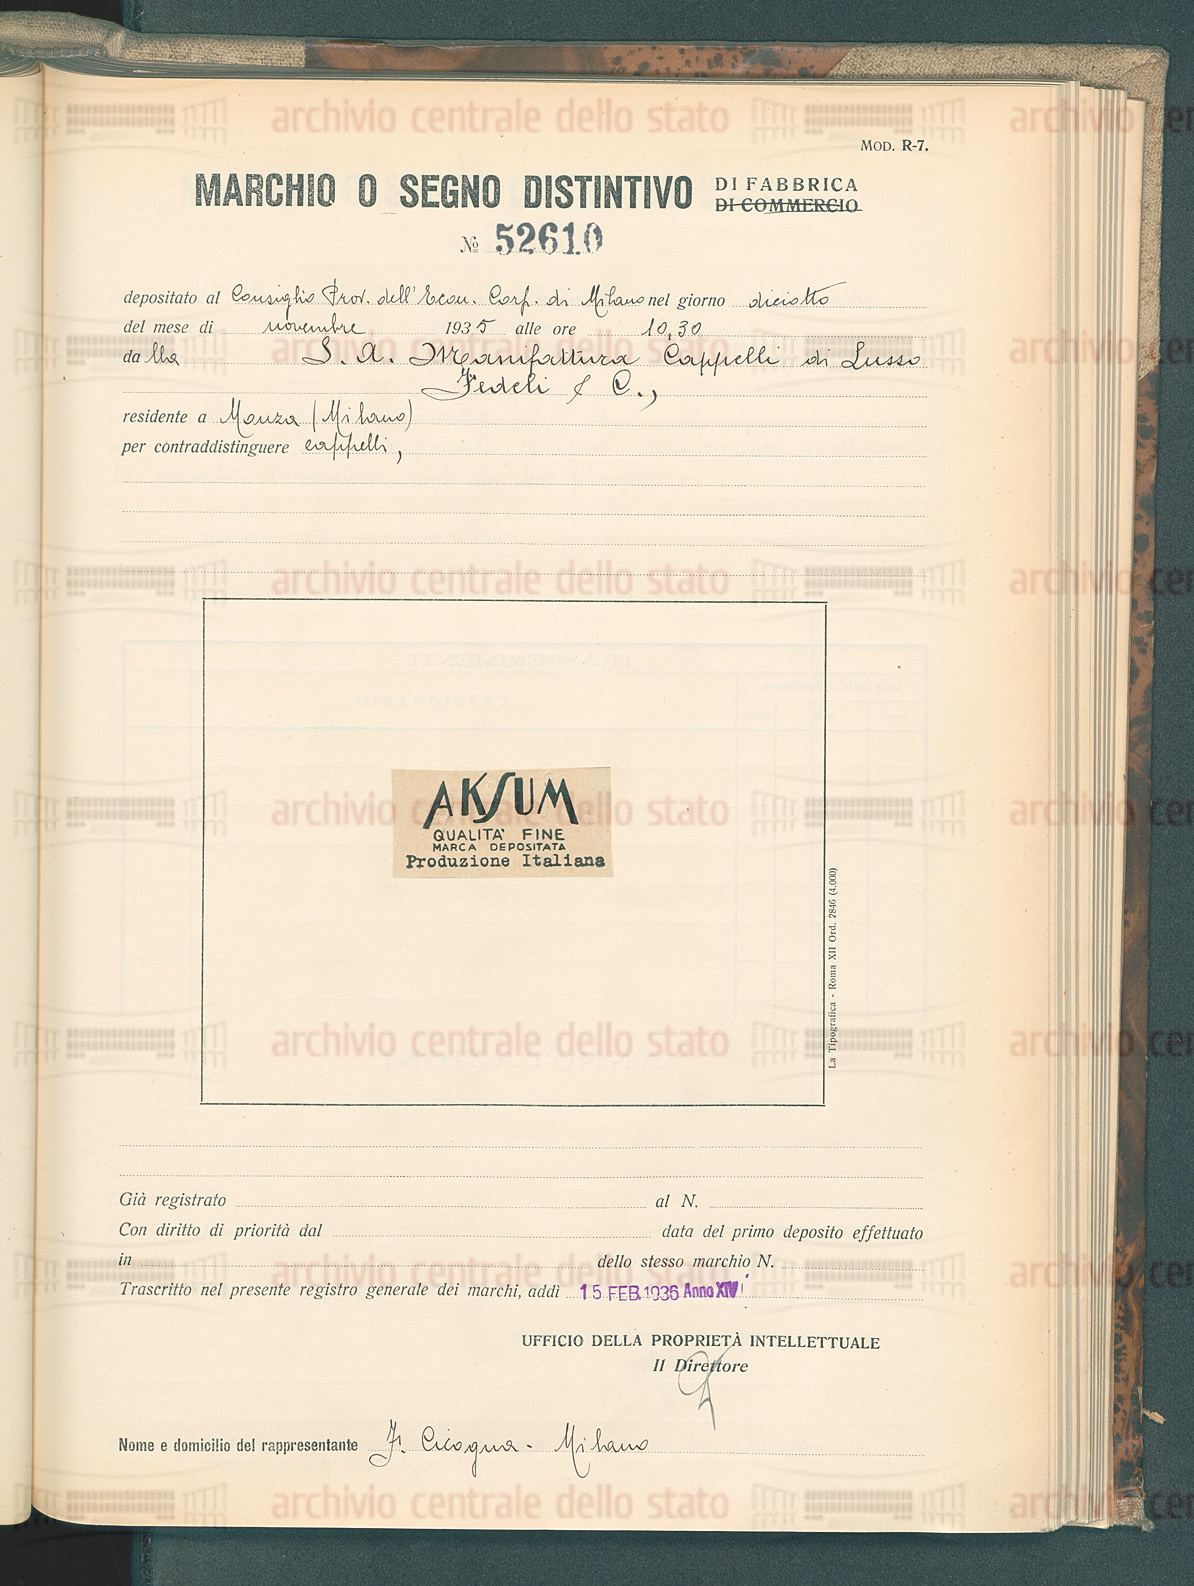 MOD. R-7.
MARCHIO O SEGNO DISTINTIVO DI FABBRICA
DI COMMERCIO
No 52610
depositato al Consiglio Prov. dell'Econ. Corp. di Milano nel giorno diciotto
del mese di novembre 1935 alle ore 10,30
da lla S. A. Manifattura Cappelli di Lusso
Fedeli & C.,
residente a Monza (Milano)
per contraddistinguere cappelli,
AKSUM
QUALITA' FINE
MARCA DEPOSITATA
Produzione Italiana
La Tipografica - Roma XII Ord. 2846 (4.000)
Già registrato al N.
Con diritto di priorità dal data del primo deposito effettuato
in dello stesso marchio N.
Trascritto nel presente registro generale dei marchi, addì 15 FEB. 1936 Anno XIV
UFFICIO DELLA PROPRIETÀ INTELLETTUALE
Il Direttore
Nome e domicilio del rappresentante F. Cicogna - Milano
archivio centrale dello stato